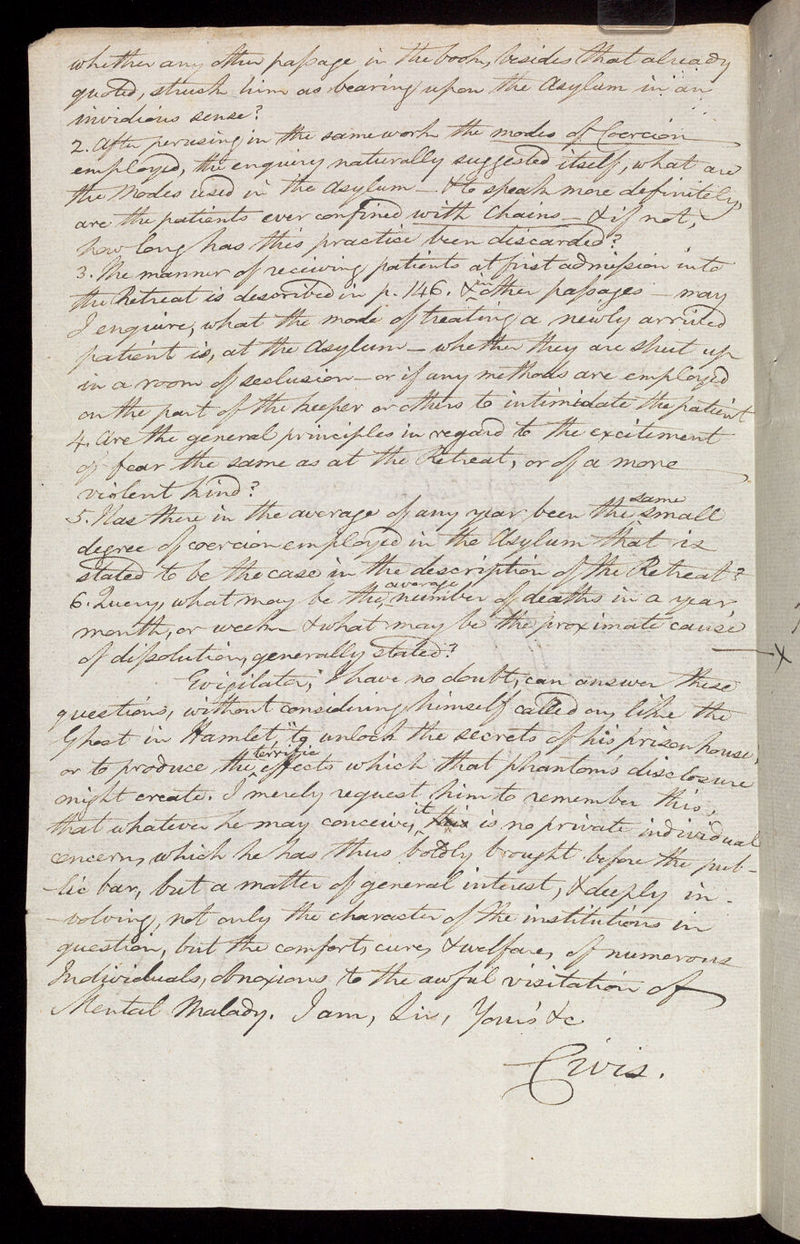 whether any other passage in the book, besides that already
quoted, struck him as bearing upon the Asylum in an
invidious sense?
2. After perusing in the same work the modes of Coercion
employed, the enquiry naturally suggested itself, what are
the Modes used in the Asylum — & to speak more definitely,
are the patients ever confined with Chains — & if not,
how long has this practise been discarded?
3. The manner of receiving patients at first admission into
the Retreat is described in p. 146. & in other passages — may
I enquire, what the mode of treating a newly arrived
patient is, at the Asylum — whether they are shut up
in a room of seclusion — or if any methods are employed
on the part of the keeper or others to intimidate the patient
4. Are the general principles in regard to the excitement
of fear the same as at the Retreat, or of a more
violent kind?
5. Has there in the average of any year been the same small
degree of coercion employed in the Asylum that is
stated to be the case in the description of the Retreat?
6. Query, what may be the average number of deaths in a year
month, or week — & what may be the proximate cause
of dissolution, generally stated?
Evigilator, I have no doubt, can answer these
questions, without considering himself called on, like the
Ghost in Hamlet, "to unlock the secrets of his prison house,"
or to produce the terrific effects which that phantom's disclosure
might create. I merely request him to remember this,
that whatever he may conceive, it is no private individual
concern, which he has thus boldly brought before the pub-
-lic bar, but a matter of general interest, & deeply in-
-volving, not only the character of the institutions in
question, but the comfort, cure, & welfare, of numerous
Individuals, obnoxious to the awful visitation of
Mental Malady. I am, Sir, Yours &c
Civis.